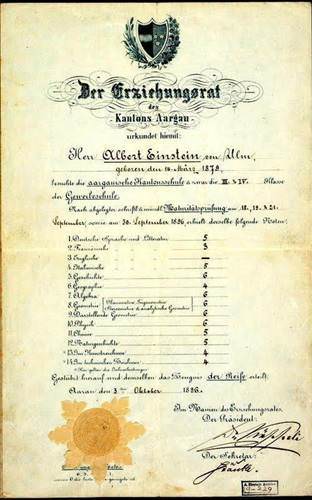 Der Erziehungsrat
des
Kantons Aargau
urkundet hiemit:
Herr Albert Einstein von Ulm,
geboren den 14. März 1879,
besuchte die aargauische Kantonsschule u. zwar die III. & IV. Klasse
der Gewerbeschule.
Nach abgelegter schriftl. & mündl. Maturitätsprüfung am 18., 19. & 21.
September, sowie am 30. September 1896, erhielt derselbe folgende Noten:
1. Deutsche Sprache und Litteratur 5
2. Französische 3
3. Englische —
4. Italienische 5
5. Geschichte 6
6. Geographie 4
7. Algebra 6
8. Geometrie (Planimetrie, Trigonometrie, Stereometrie & analytische Geometrie) 6
9. Darstellende Geometrie 6
10. Physik 6
11. Chemie 5
12. Naturgeschichte 5
13. Im Kunstzeichnen 4
14. Im technischen Zeichnen 4
Hier gelten die Jahresleistungen.
Gestützt hierauf wird demselben das Zeugnis der Reife erteilt.
Aarau den 3ten Oktober 1896.
Im Namen des Erziehungsrates,
Der Präsident:
Der Sekretär: